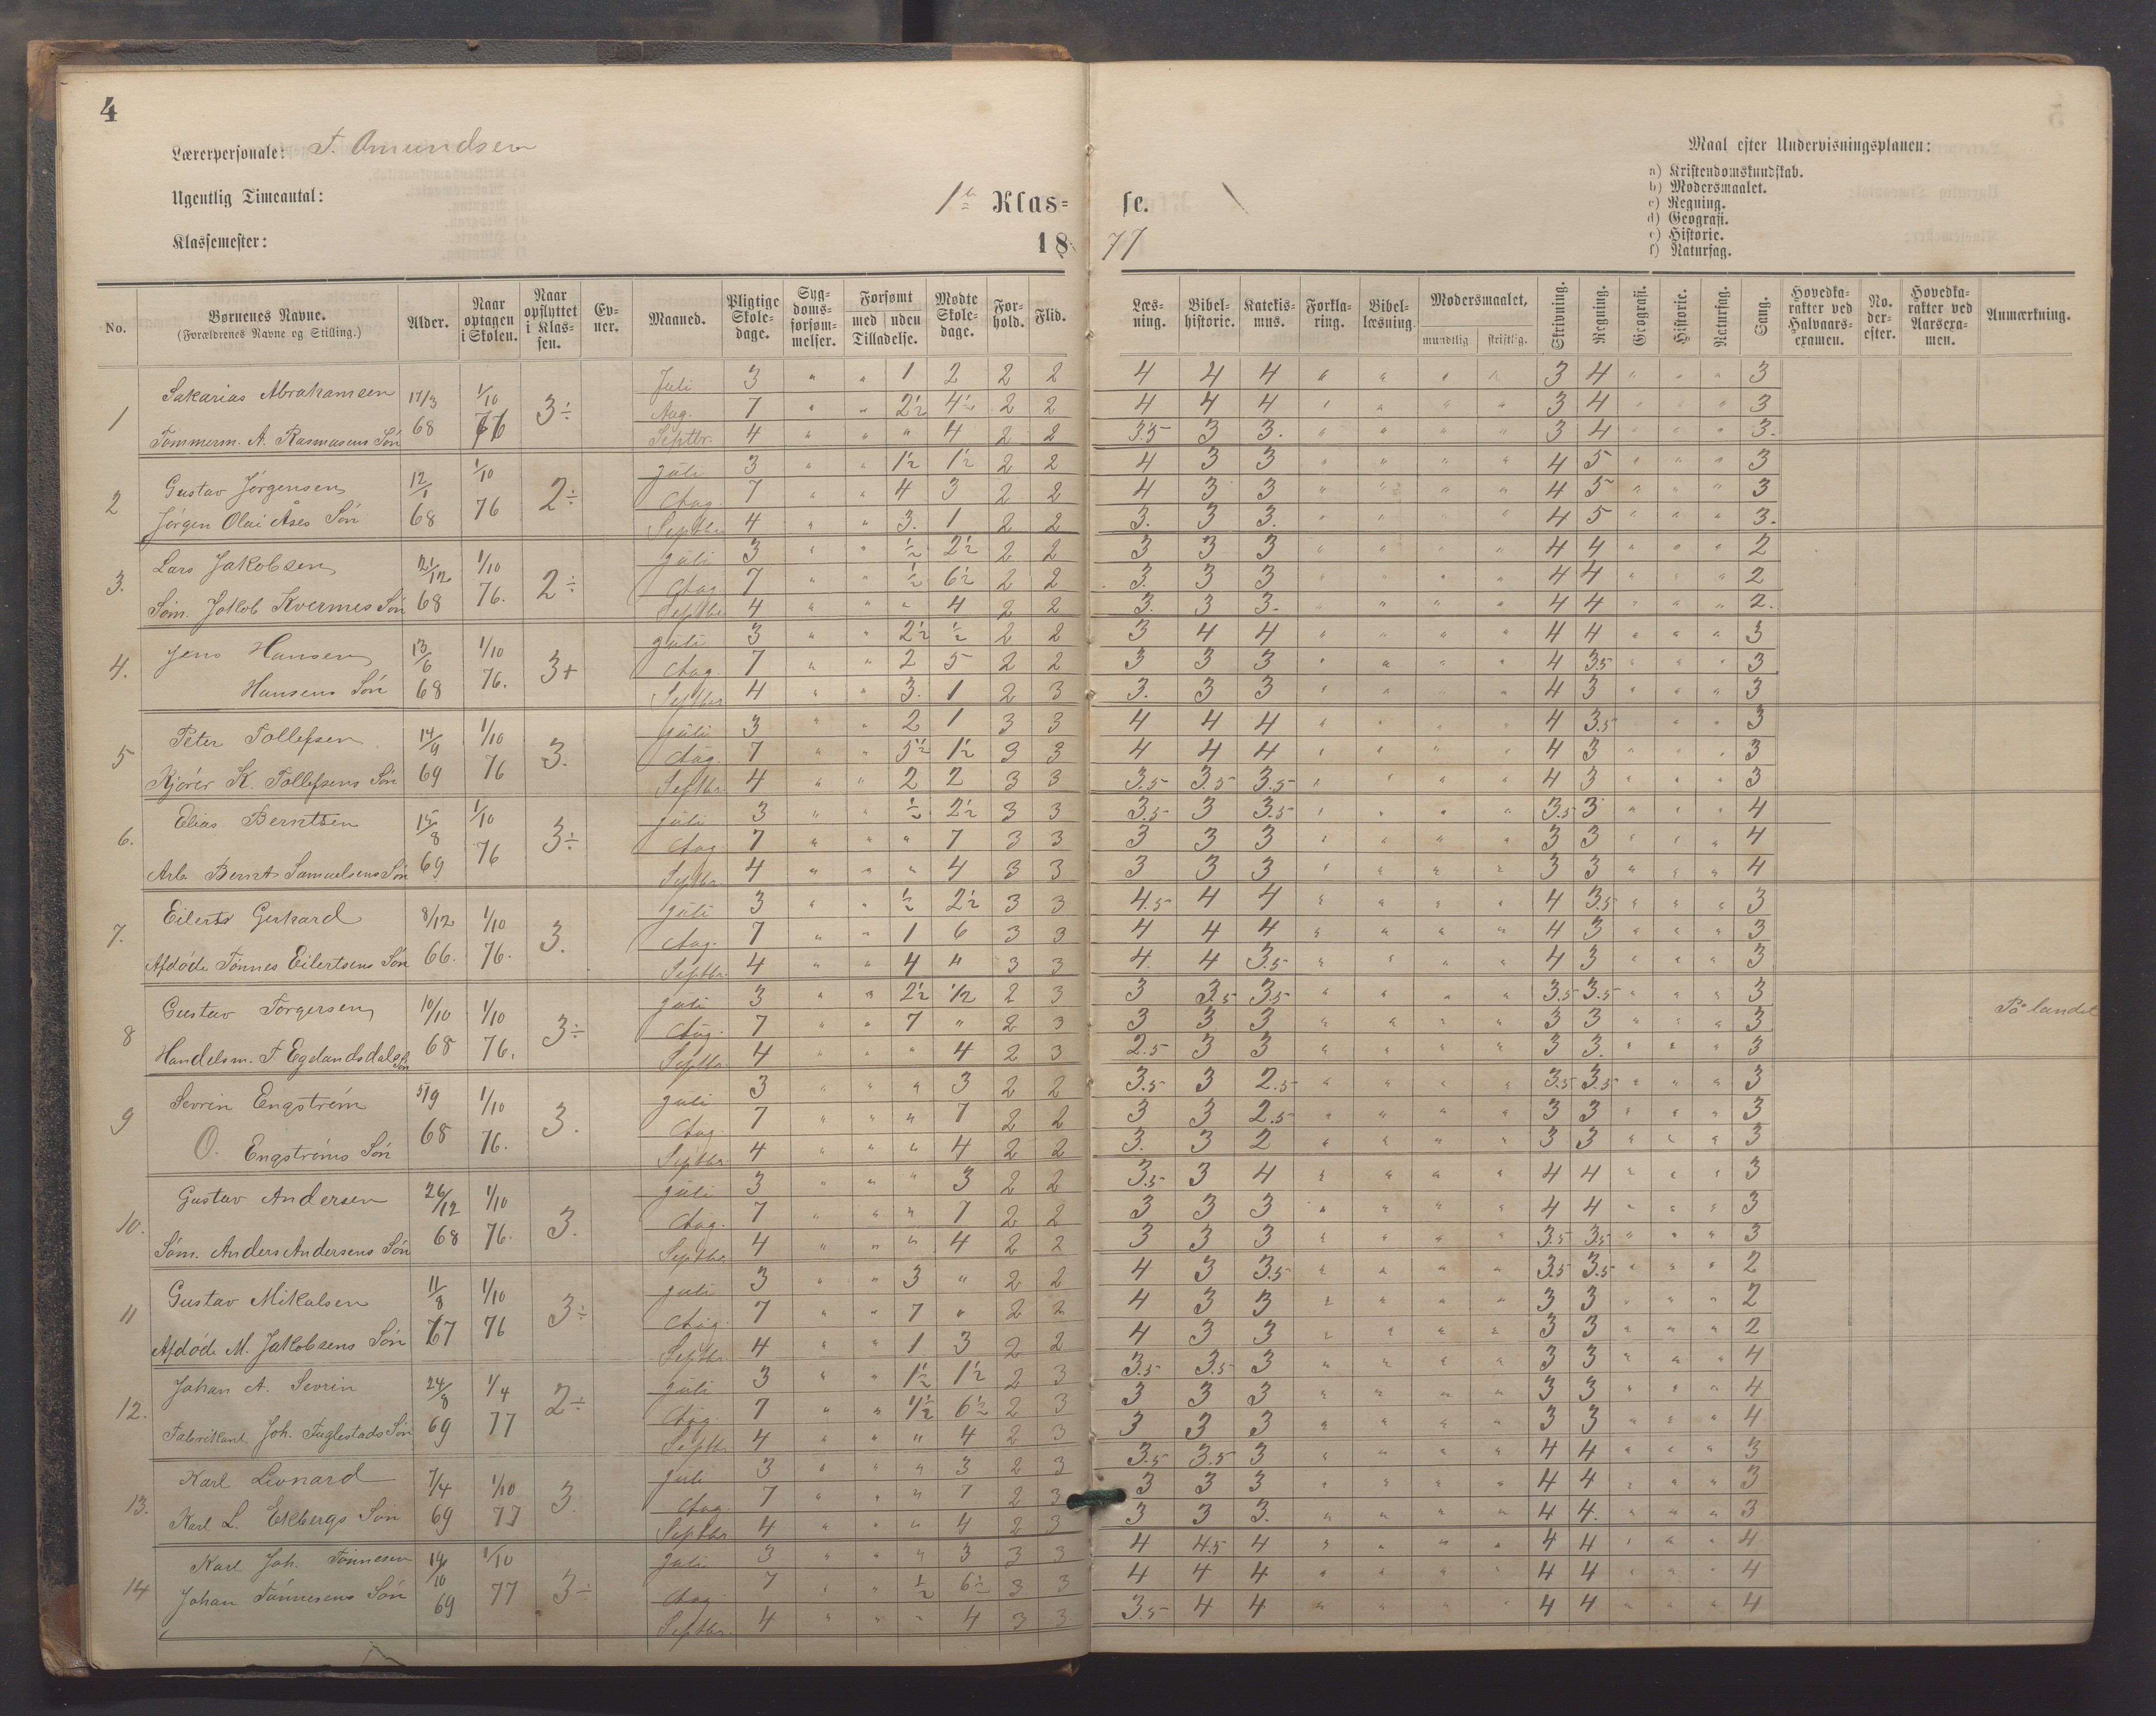 4
Lærerpersonale: T. Omundsen
Ugentlig Timeantal:
Klassemester:
1ste Klas= se.
18 77
Maal efter Undervisningsplanen:
a) Kristendomskundskab.
b) Modersmaalet.
c) Regning.
d) Geografi.
e) Historie.
f) Naturfag.
No. Børnenes Navne. (Forældrenes Navne og Stilling.) Alder. Naar optagen i Skolen. Naar opflyttet i Klassen. Evner. Maaned. Pligtige Skoledage. Sygdomsforsømmelser. Forsømt med uden Tilladelse. Mødte Skoledage. Forhold. Flid. Læsning. Bibelhistorie. Katekismus. Forklaring. Bibellæsning. Modersmaalet, mundtlig skriftlig. Skrivning. Regning. Geografi. Historie. Naturfag. Sang. Hovedkarakter ved Halvaarsexamen. No. derefter. Hovedkarakter ved Aarsexamen. Anmærkning.
1 Sakarias Abrahamsen 17/3 68 1/10 76 3÷ Juli 3 " " 1 2 2 2 4 4 4 " " " " 3 4 " " " 3
Aug. 7 " " 2½ 4½ 2 2 4 4 4 " " " " 3 4 " " " 3
Tømmerm. A. Rasmusens Søn Septbr. 4 " " " 4 2 2 3.5 3 3. " " " " 3 4 " " " 3.
2 Gustav Jørgensen 12/1 68 1/10 76 2÷ Juli 3 " " 1½ 1½ 2 2 4 3 3 " " " " 4 5 " " " 3
Aug. 7 " " 4 3 2 2 4 3 3 " " " " 4 5 " " " 3
Jørgen Olai Åses Søn Septbr. 4 " " 3. 1 2 2 3. 3 3. " " " " 4 5 " " " 3.
3. Lars Jakobsen 21/12 68 1/10 76. 2÷ Juli 3 " " ½ 2½ 2 2 3 3 3 " " " " 4 4 " " " 2
Aug. 7 " " ½ 6½ 2 2 3. 3 3 " " " " 4 4 " " " 2
Søm. Jakob Kvernes Søn Septbr. 4 " " " 4 2 2 3. 3 3. " " " " 4 4 " " " 2.
4. Jens Hansen 13/6 68 1/10 76. 3+ Juli 3 " " 2½ ½ 2 2 3 4 4 " " " " 4 4 " " " 3
Aug. 7 " " 2 5 2 2 3 3 3 " " " " 4 3.5 " " " 3
Hansens Søn Septbr. 4 " " 3. 1 2 3 3. 3 3 " " " " 4 3 " " " 3
5 Peter Tollefsen 14/9 69 1/10 76 3. Juli 3 " " 2 1 3 3 4 4 4 " " " " 4 3.5 " " " 3
Aug. 7 " " 5½ 1½ 3 3 4 4 4 " " " " 4 3 " " " 3
Kjører K. Tollefsens Søn Septbr. 4 " " 2 2 3 3 3.5 3.5 3.5 " " " " 4 3 " " " 3
6. Elias Berntsen 15/8 69 1/10 76 3÷ Juli 3 " " ½ 2½ 3 3 3.5 3 3.5 " " " " 3.5 3 " " " 4
Aug. 7 " " " 7 3 3 3 3 3 " " " " 3 3 " " " 4
Arb. Bernt Samuelsens Søn Septbr. 4 " " " 4 3 3 3 3 3 " " " " 3 3 " " " 4
7. Eilerts Gerhard 8/12 66. 1/10 76. 3. Juli 3 " " ½ 2½ 3 3 4.5 4 4 " " " " 4 3.5 " " " 3
Aug. 7 " " 1 6 3 3 4 4 4 " " " " 4 3 " " " 3
Afdøde Tønnes Eilertsens Søn Septbr. 4 " " 4 " 3 3 4. 4 3.5 " " " " 4 3 " " " 3
8 Gustav Torgersen 10/10 68 1/10 76. 3÷ Juli 3 " " 2½ 1/2 2 3 3 3.5 3.5 " " " " 3.5 3.5 " " " 3 På landet
Aug. 7 " " 7 " 2 3 3 3 3 " " " " 3 3 " " " 3
Handelsm. T Egelandsdals Søn Septbr. 4 " " " 4 2 3 2.5 3 3 " " " " 3 3. " " " 3
9 Sevrin Engstrøm 5/9 68 1/10 76. 3. Juli 3 " " " 3 2 2 3.5 3 2.5 " " " " 3.5 3.5 " " " 3
Aug. 7 " " " 7 2 2 3 3 2.5 " " " " 3 3 " " " 3
O. Engstrøms Søn Septbr. 4 " " " 4 2 2 3. 3 2 " " " " 3 3 " " " 3
10. Gustav Andersen 26/12 68 1/10 76. 3. Juli 3 " " " 3 2 2 3.5 3 4 " " " " 4 4 " " " 3
Aug. 7 " " " 7 2 2 3 3 3 " " " " 4 4 " " " 3
Søm. Anders Andersens Søn Septbr. 4 " " " 4 2 2 3 3 3 " " " " 3.5 3.5 " " " 3
11 Gustav Mikalsen 11/8 67 1/10 76 3÷ Juli 3 " " 3 " 2 2 4 3 3.5 " " " " 3.5 3.5 " " " 2
Aug. 7 " " 7 " 2 2 4 3 3 " " " " 3 3 " " " 2
Afdøde M. Jakobsens Søn Septbr. 4 " " 1 3 2 2 4 3 3 " " " " 3 3 " " " 2
12. Johan A. Sevrin 24/8 69 1/4 77 2÷ Juli 3 " " 1½ 1½ 2 3 3.5 3.5 3 " " " " 3 3 " " " 4
Aug. 7 " " ½ 6½ 2 3 3 3 3 " " " " 3 3 " " " 4
Fabrikant Joh. Fuglestads Søn Septbr. 4 " " " 4 2 3 3 3 3 " " " " 3 3 " " " 4
13. Karl Leonard 7/4 69 1/10 77 3. Juli 3 " " " 3 2 3 3.5 3.5 3 " " " " 4 4 " " " 3
Aug. 7 " " " 7 2 3 3 3 3 " " " " 4 4 " " " 3
Karl L. Ekbergs Søn Septbr. 4 " " " 4 2 3 3 3 3. " " " " 4 4. " " " 3
14 Karl Joh. Tønnesen 19/10 69 1/10 77 3÷ Juli 3 " " " 3 3 3 4 4.5 4 " " " " 4 4 " " " 4
Aug. 7 " " ½ 6½ 3 3 4 4 4 " " " " 4 4 " " " 4
Johan Tønnesens Søn Septbr. 4 " " " 4 3 3 3.5 4 4 " " " " 4 4 " " " 4